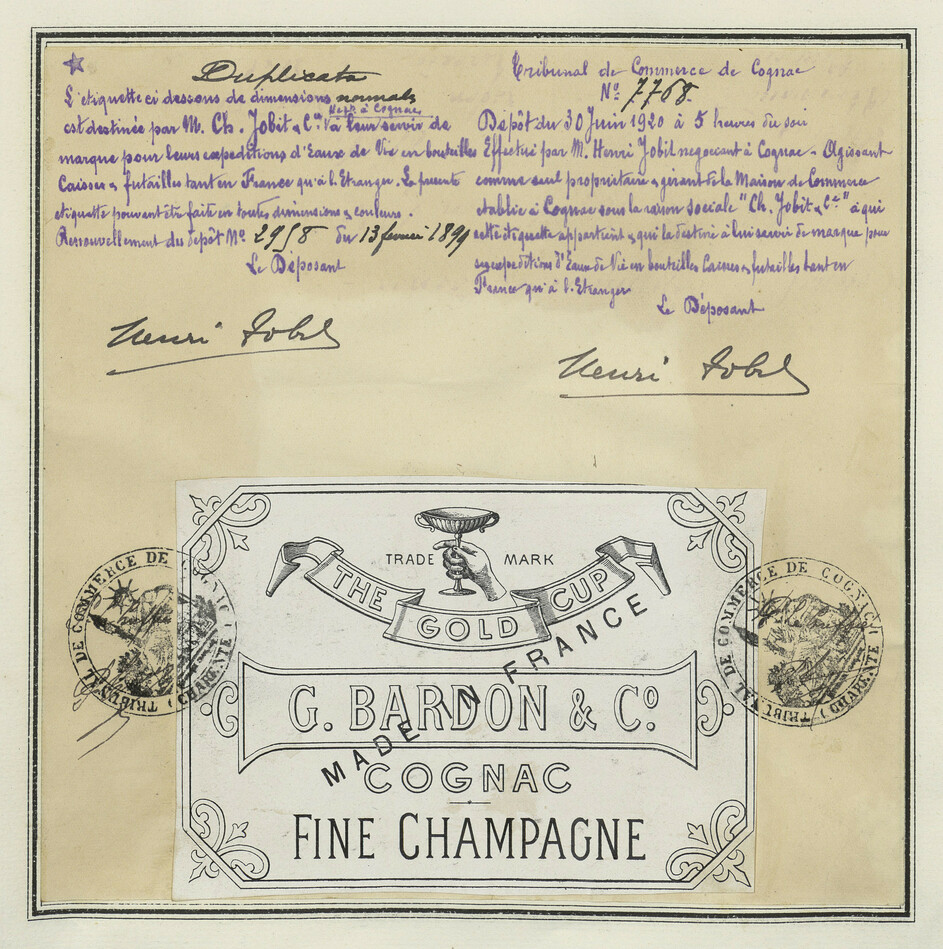 Duplicata
L'etiquette ci dessous de dimensions normales
Negt à Cognac
est destinée par M. Ch. Jobit & Cie à leur servir de
marque pour leurs expeditions d'Eaux de Vie en bouteilles
Caisses & futailles tant en France qu'à l'Etranger. La présente
etiquette pouvant être faite en toutes dimensions & couleurs.
Renouvellement du depôt No 2958 du 13 fevrier 1899
Le Déposant
Henri Jobit
Tribunal de Commerce de Cognac
No 7768.
Depôt du 30 Juin 1920 à 5 heures du soir
Effectué par M. Henri Jobit negociant à Cognac - Agissant
comme seul propriétaire & gérant de la Maison de Commerce
etablie à Cognac sous la raison sociale "Ch. Jobit & Cie" à qui
cette étiquette appartient & qui la destine à lui servir de marque pour
ses expeditions d'Eaux de Vie en bouteilles Caisses & futailles tant en
France qu'à l'Etranger
Le Déposant
Henri Jobit
TRADE MARK
THE GOLD CUP
MADE IN FRANCE
G. BARDON & Co
COGNAC
FINE CHAMPAGNE
TRIBUNAL DE COMMERCE DE COGNAC (CHARENTE)
TRIBUNAL DE COMMERCE DE COGNAC (CHARENTE)